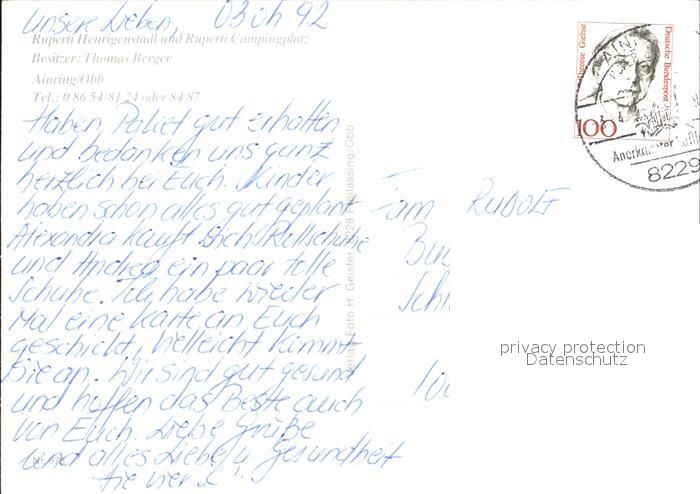 Unsere Lieben, 03.04.92
Ruperti Heurigenstadl und Ruperti Campingplatz
Besitzer: Thomas Berger
Ainring/Obb
Tel.: 0 86 54/81 24 oder 84 87
Haben Paket gut erhalten
und bedanken uns ganz
herzlich bei Euch. Kinder
haben schon alles gut geplant
Alexandra kauft sich Rollschuhe
und Andrea ein paar tolle
Schuhe. Ich habe wieder
Mal eine Karte an Euch
geschickt, vielleicht kommt
Sie an. Wir sind gut gesund
und hoffen das Beste auch
von Euch. Liebe Grüße
und alles Liebe u. Gesundheit
Die vier
Verlag Foto H. Geister, 8228 Freilassing/Obb
Fam RUDOLF
Therese Giehse
Deutsche Bundespost
100
AIN
Anerkannter
8229
privacy protection
Datenschutz